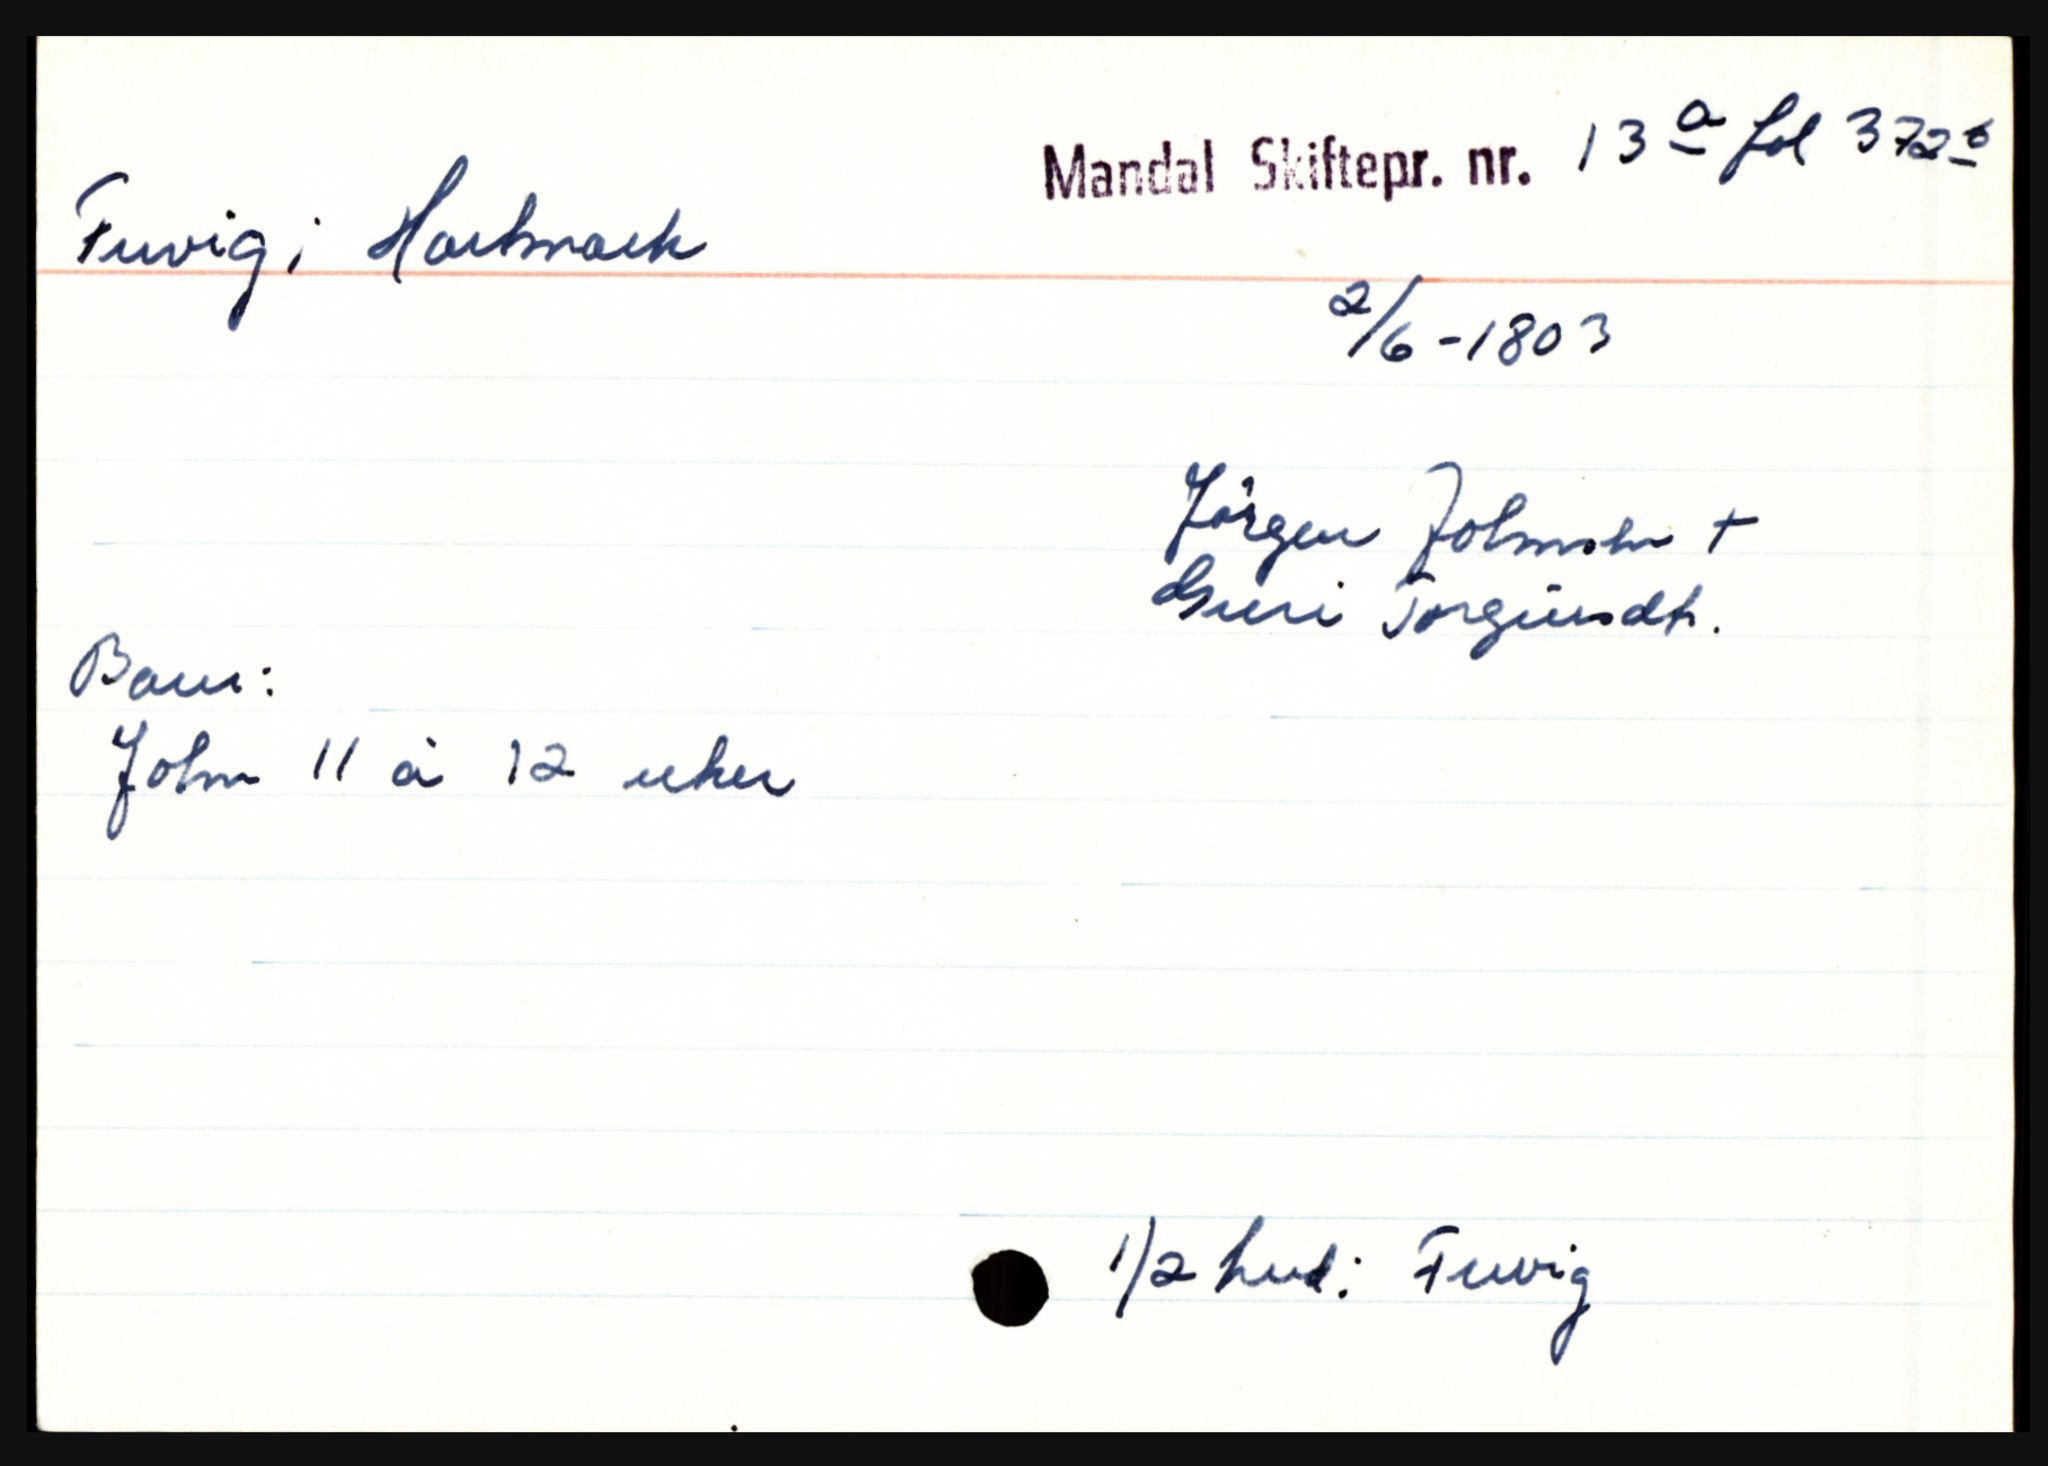 Mandal Skiftepr. nr. 13 a fol 372 b
Fuvig i Hartmark
2/6-1803
Jörgen Johnsen +
Guri Torgiusdtr.
Barn:
John 11 à 12 uker
1/2 hud i Fuvig